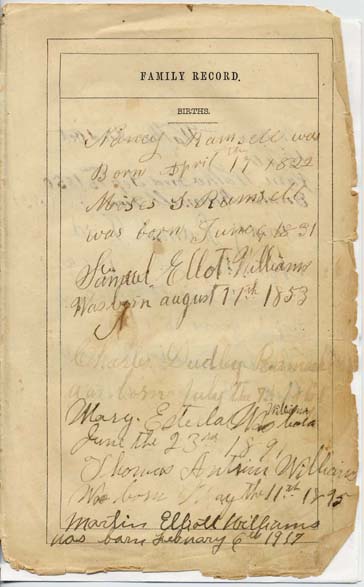 FAMILY RECORD.
BIRTHS.
Nancy Ramsell was
Born April 17th 1822
Moses S. Rumsell
was born June 1831
Samuel Elliot Williams
Was born august 11th 1853
Charles Dudley
was born July the
Mary Estela Williams
June the 23rd 189
Thomas Antuin Williams
Was born May the 11th 1895
Martin Elliott Williams
was born February 6th 1917